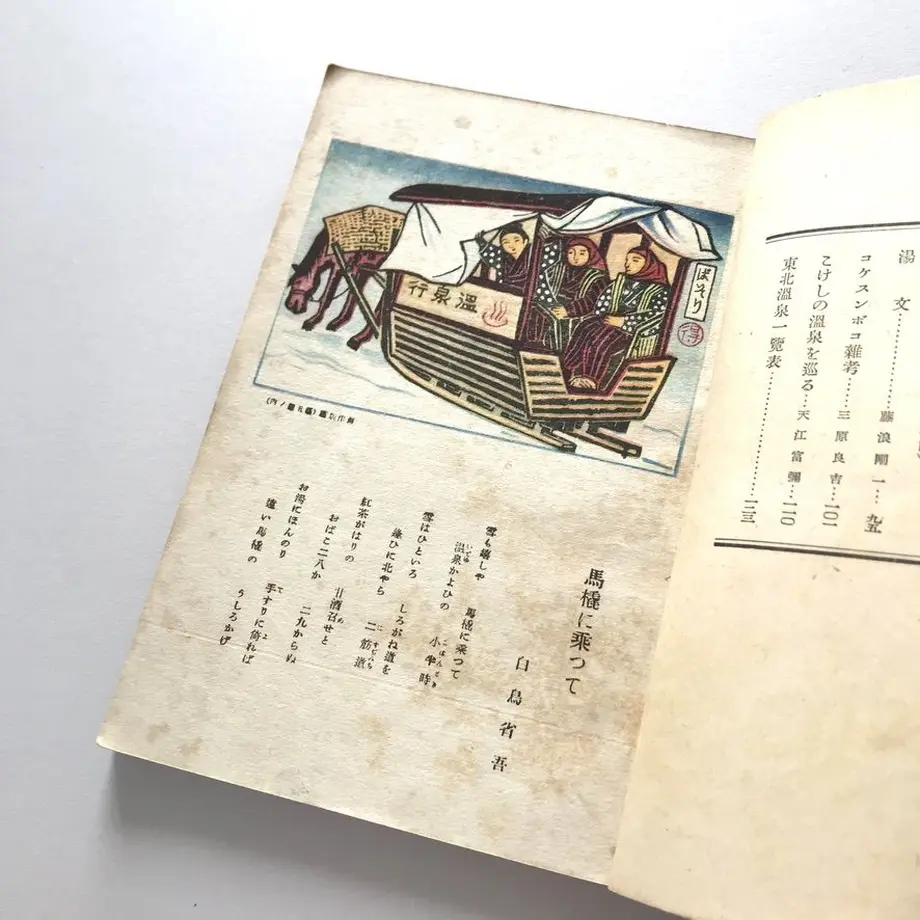 湯文……藤浪剛一…九五
コケスンボコ雜考……三原良吉…一〇一
こけしの溫泉を巡る……天江富彌…一一〇
東北溫泉一覽表……
ばそり
得
溫泉行
馬橇に乘つて
白鳥省吾
雪も嬉しや 馬橇に乘つて
溫泉かよひの 小半時
雪はひといろ しろがね道を
北やら 二筋道
紅茶がはりの 甘酒召せと
おばこ二八か 二九からぬ
お湯にほんのり 手すりに倚れば
遠い馬橇の うしろかげ